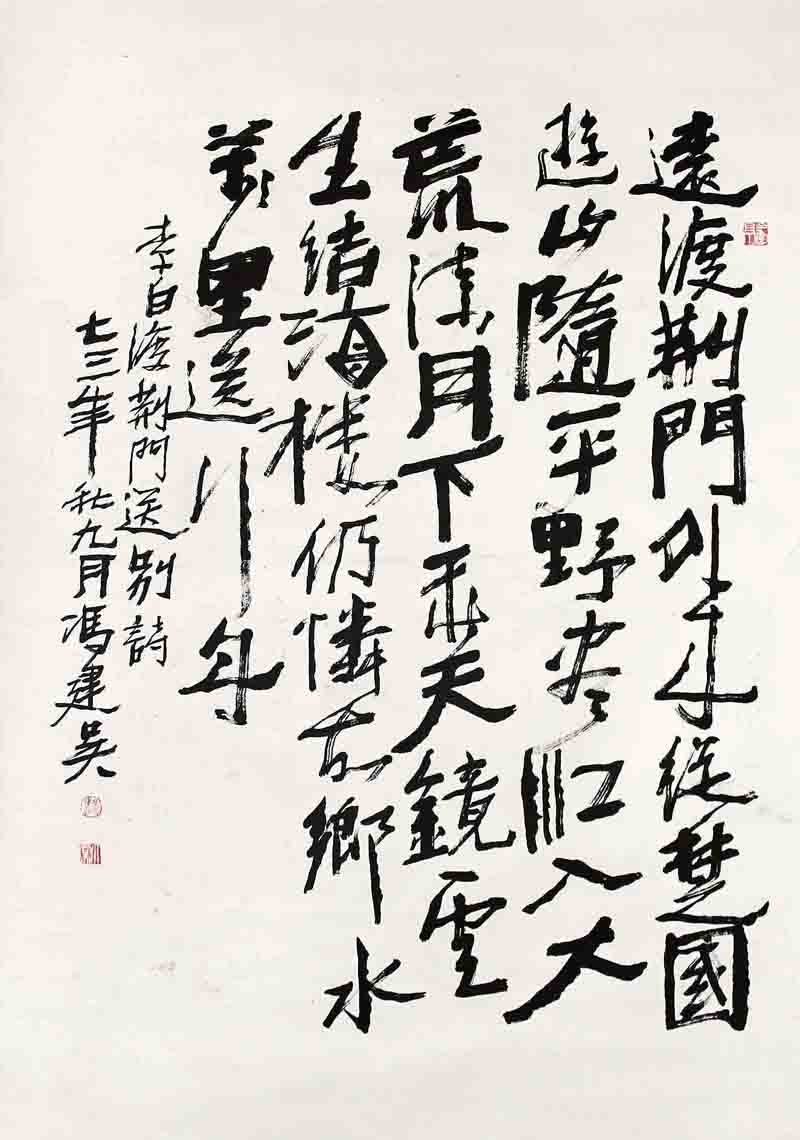 遠渡荆門外来從楚國
遊山隨平野尽江入大
荒流月下飛天鏡雲
生結海楼仍憐故鄉水
萬里送行舟
李白渡荆門送别詩
七三年秋九月馮建吴